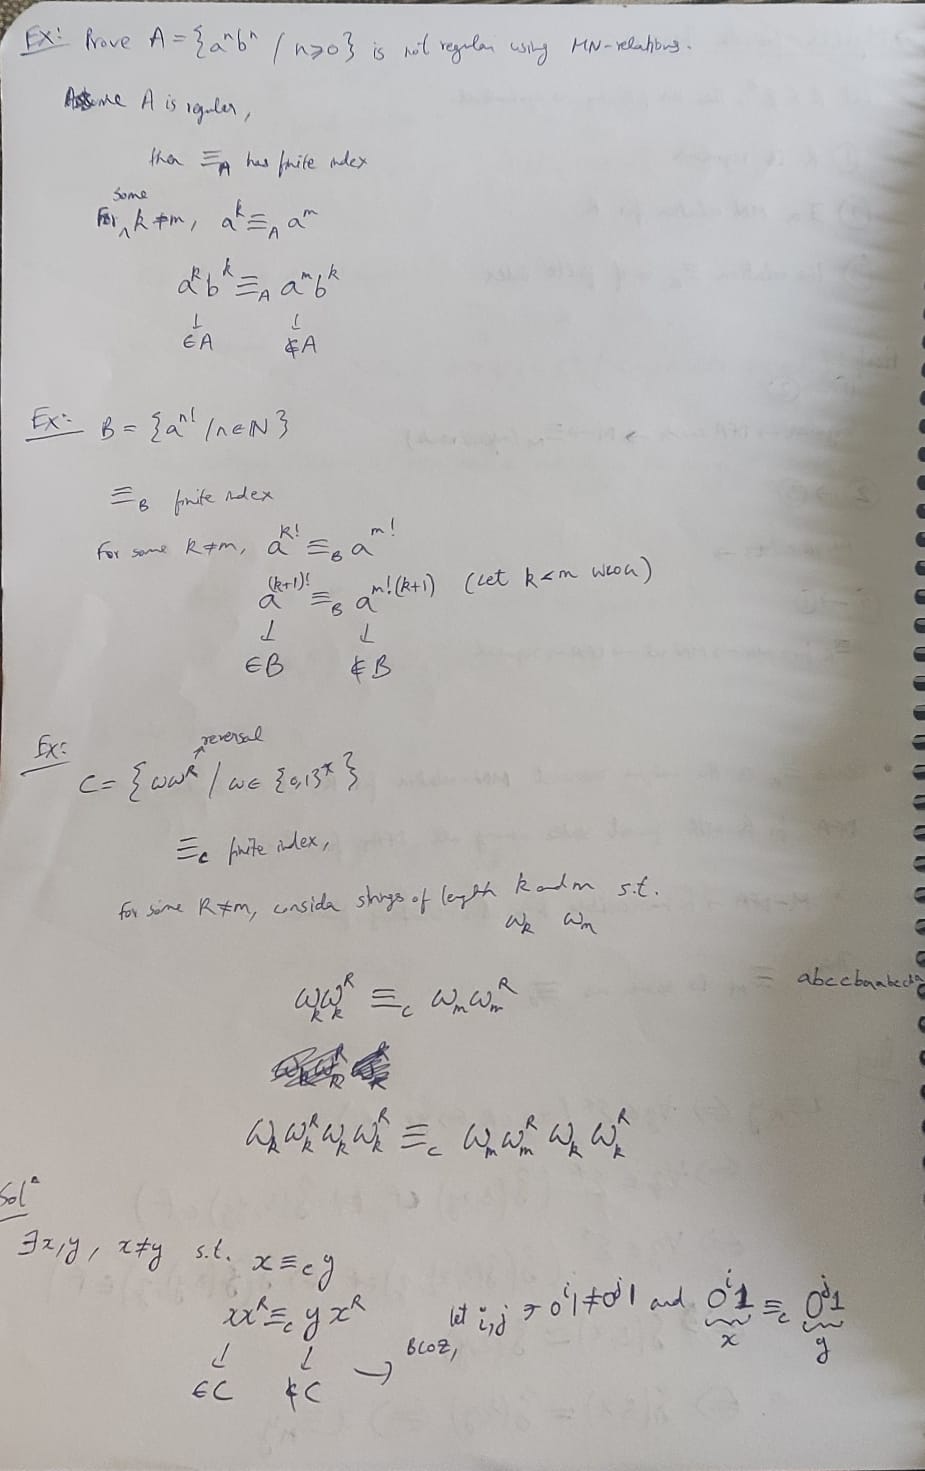 Ex: Prove A = {aⁿbⁿ / n≥0} is not regular using MN-relations.
Assume A is regular,
then ≡_A has finite index
some
For ∧ k ≠ m, a^k ≡_A a^m
a^k b^k ≡_A a^m b^k
↓ ↓
∈A ∉A
Ex: B = {a^{n!} / n∈N}
≡_B finite index
For some k≠m, a^{k!} ≡_B a^{m!}
a^{(k+1)!} ≡_B a^{m!(k+1)} (Let k<m WLOG)
↓ ↓
∈B ∉B
reversal
Ex:
C = {ωω^R / ω∈ {0,1}^*}
≡_C finite index,
For some k≠m, consider strings of length k and m s.t.
ω_k ω_m
≡ abccbaabccba
ω_k ω_k^R ≡_C ω_m ω_m^R
ω_k ω_k^R ω_k ω_k^R ≡_C ω_m ω_m^R ω_k ω_k^R
Solⁿ
∃x,y, x≠y s.t. x ≡_C y
xx^R ≡_C yx^R
↓ ↓ → BCOZ, let i,j ∋ 0^i1 ≠ 0^j1 and 0^i1 ≡_C 0^j1
x y
∈C ∉C